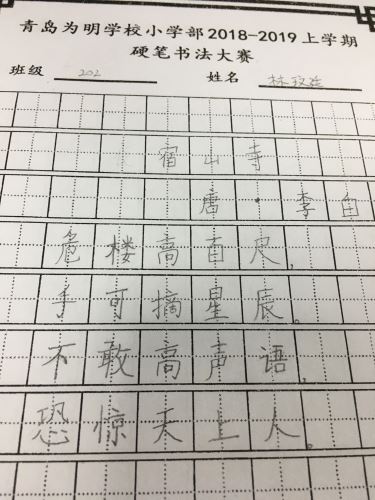 青岛为明学校小学部2018-2019上学期
硬笔书法大赛
班级 202 姓名 林玟廷
宿山寺
唐·李白
危楼高百尺，
手可摘星辰。
不敢高声语，
恐惊天上人。